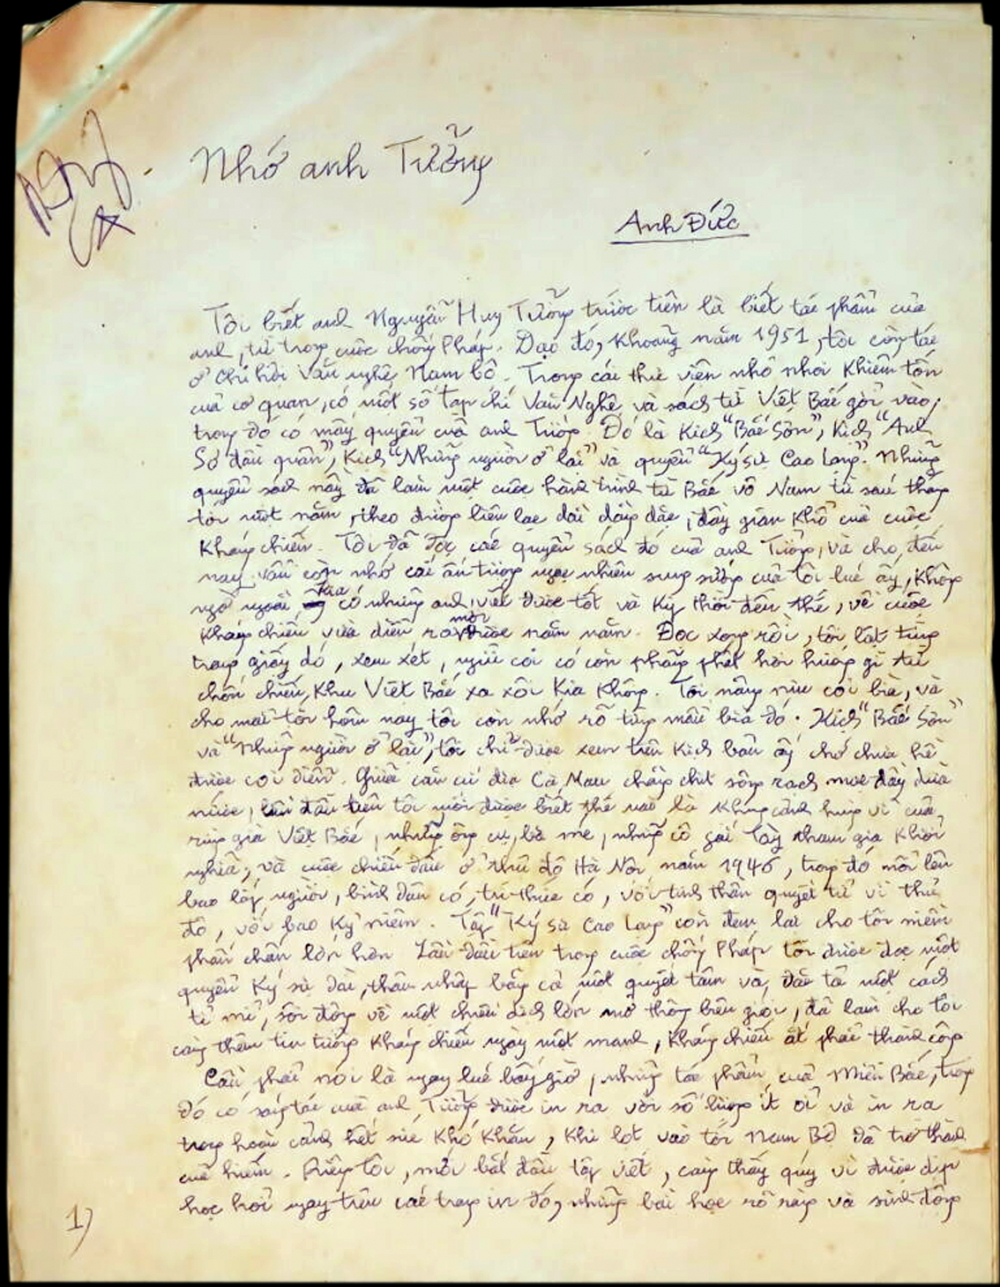 Nhớ anh Tưởng
Anh Đức
Tôi biết anh Nguyễn Huy Tưởng trước tiên là biết tác phẩm của
anh, từ trong cuộc chống Pháp. Dạo đó, khoảng năm 1951, tôi công tác
ở Chi hội Văn nghệ Nam bộ. Trong cái thư viện nhỏ nhoi khiêm tốn
của cơ quan, có một số Tạp chí Văn Nghệ và sách từ Việt Bắc gởi vào,
trong đó có mấy quyển của anh Tưởng. Đó là Kịch "Bắc Sơn", Kịch "Anh
Sơ đầu quân", Kịch "Những người ở lại" và quyển "Ký sự Cao Lạng". Những
quyển sách này đã làm một cuộc hành trình từ Bắc vô Nam từ sáu tháng
tới một năm, theo đường liên lạc dài dằng dặc, đầy gian khổ của cuộc
kháng chiến. Tôi đã đọc các quyển sách đó của anh Tưởng, và cho đến
nay vẫn còn nhớ cái ấn tượng ngạc nhiên sung sướng của tôi lúc ấy, không
ngờ ngoài kia có những anh viết được tốt và kịp thời đến thế, về cuộc
kháng chiến vừa diễn ra mới được năm năm. Đọc xong rồi, tôi lật từng
trang giấy dó, xem xét, ngửi coi có còn phảng phất hơi hướng gì từ
chốn chiến khu Việt Bắc xa xôi kia không. Tôi nâng niu coi bìa, và
cho mãi tới hôm nay tôi còn nhớ rõ từng mẫu bìa đó. Kịch "Bắc Sơn"
và "Những người ở lại", tôi chỉ được xem trên kịch bản ấy chớ chưa hề
được coi diễn. Giữa căn cứ địa Cà Mau chằng chịt sông rạch mọc đầy dừa
nước, lần đầu tiên tôi mới được biết thế nào là khung cảnh hùng vĩ của
rừng già Việt Bắc, những ông cụ, bà mẹ, những cô gái Tày tham gia khởi
nghĩa, và cuộc chiến đấu ở thủ đô Hà Nội năm 1946, trong đó nổi lên
bao lớp người, bình dân có, trí thức có, với tinh thần quyết tử vì thủ
đô, với bao kỷ niệm. Tập "Ký sự Cao Lạng" còn đem lại cho tôi niềm
phấn chấn lớn hơn. Lần đầu tiên trong cuộc chống Pháp tôi được đọc một
quyển ký sự dài, thâu nhập bằng cả một quyết tâm và đặc tả một cách
tỉ mỉ, sôi động về một chiến dịch lớn mở thông biên giới, đã làm cho tôi
càng thêm tin tưởng kháng chiến ngày một mạnh, kháng chiến ắt phải thành công
Cần phải nói là ngay lúc bấy giờ, những tác phẩm của Miền Bắc, trong
đó có sáng tác của anh Tưởng được in ra với số lượng ít ỏi và in ra
trong hoàn cảnh hết sức khó khăn, khi lọt vào tới Nam Bộ đã trở thành
của hiếm. Riêng tôi, mới bắt đầu tập viết, càng thấy quý vì được dịp
học hỏi ngay trên các trang in đó, những bài học rõ ràng và sinh động
1)